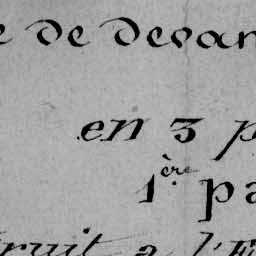 e de devan
en 3 p
1ère pa
ruit a l'E